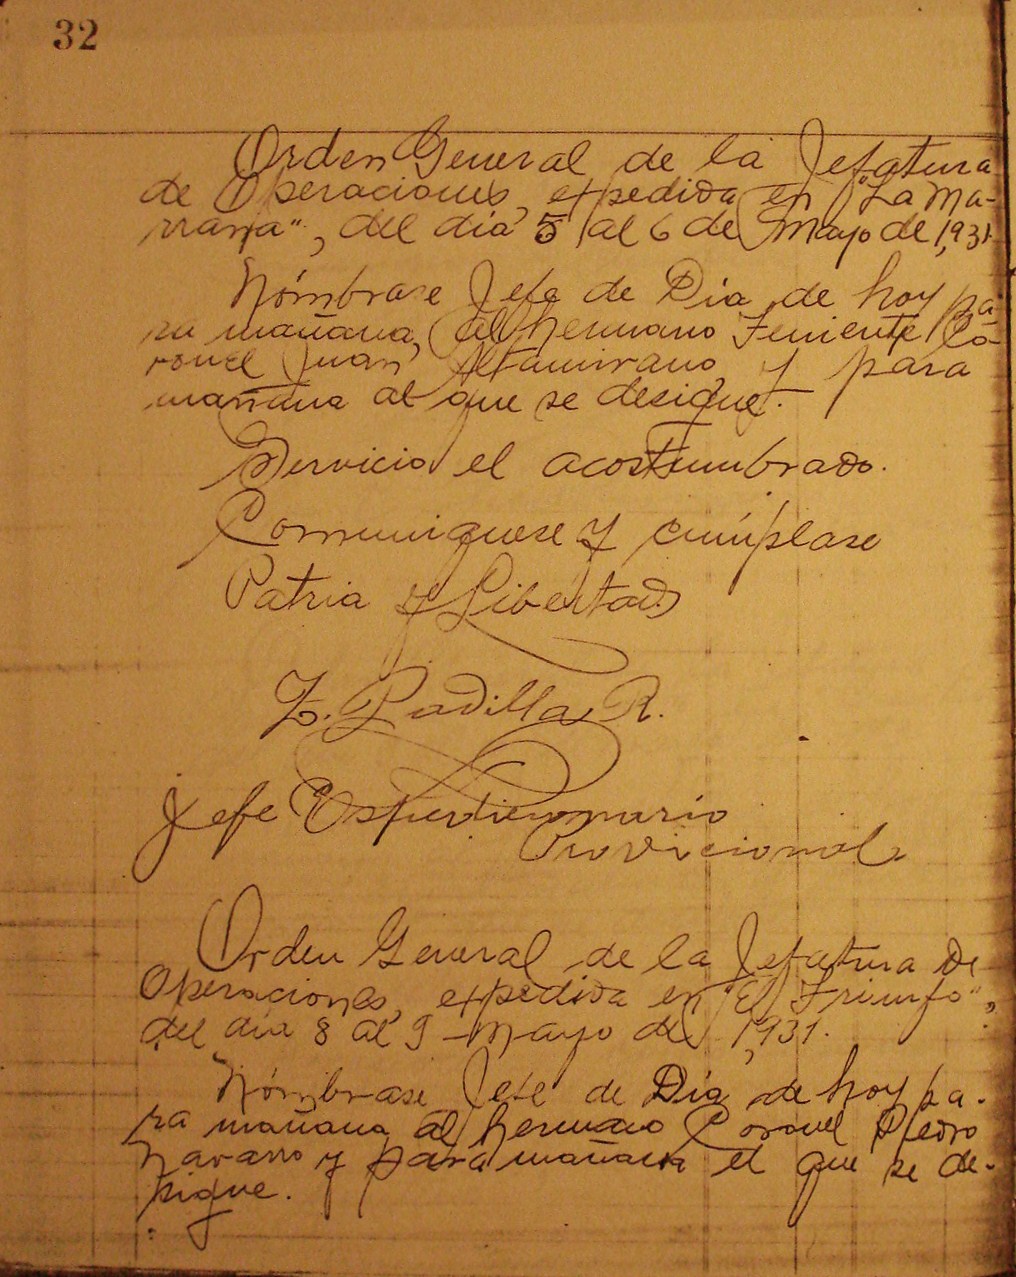 32
Orden General de la Jefatura
de Operaciones, expedida en "La Ma-
rraña", del día 5 al 6 de Mayo de 1,931
Nómbrase Jefe de Día de hoy pa-
ra mañana, al hermano Teniente Co-
ronel Juan Altamirano y para
mañana al que se desique.
Servicio el acostumbrado.
Comuniquese y cúmplase
Patria y Libertad
Padilla R.
Jefe Expedicionario
Provicional
Orden General de la Jefatura De
Operaciones, expedida en "El Triunfo",
del día 8 al 9 Mayo de 1,931.
Nómbrase Jefe de Día de hoy pa-
ra mañana al hermano Coronel Pedro
y para mañana el que se de-
sique.